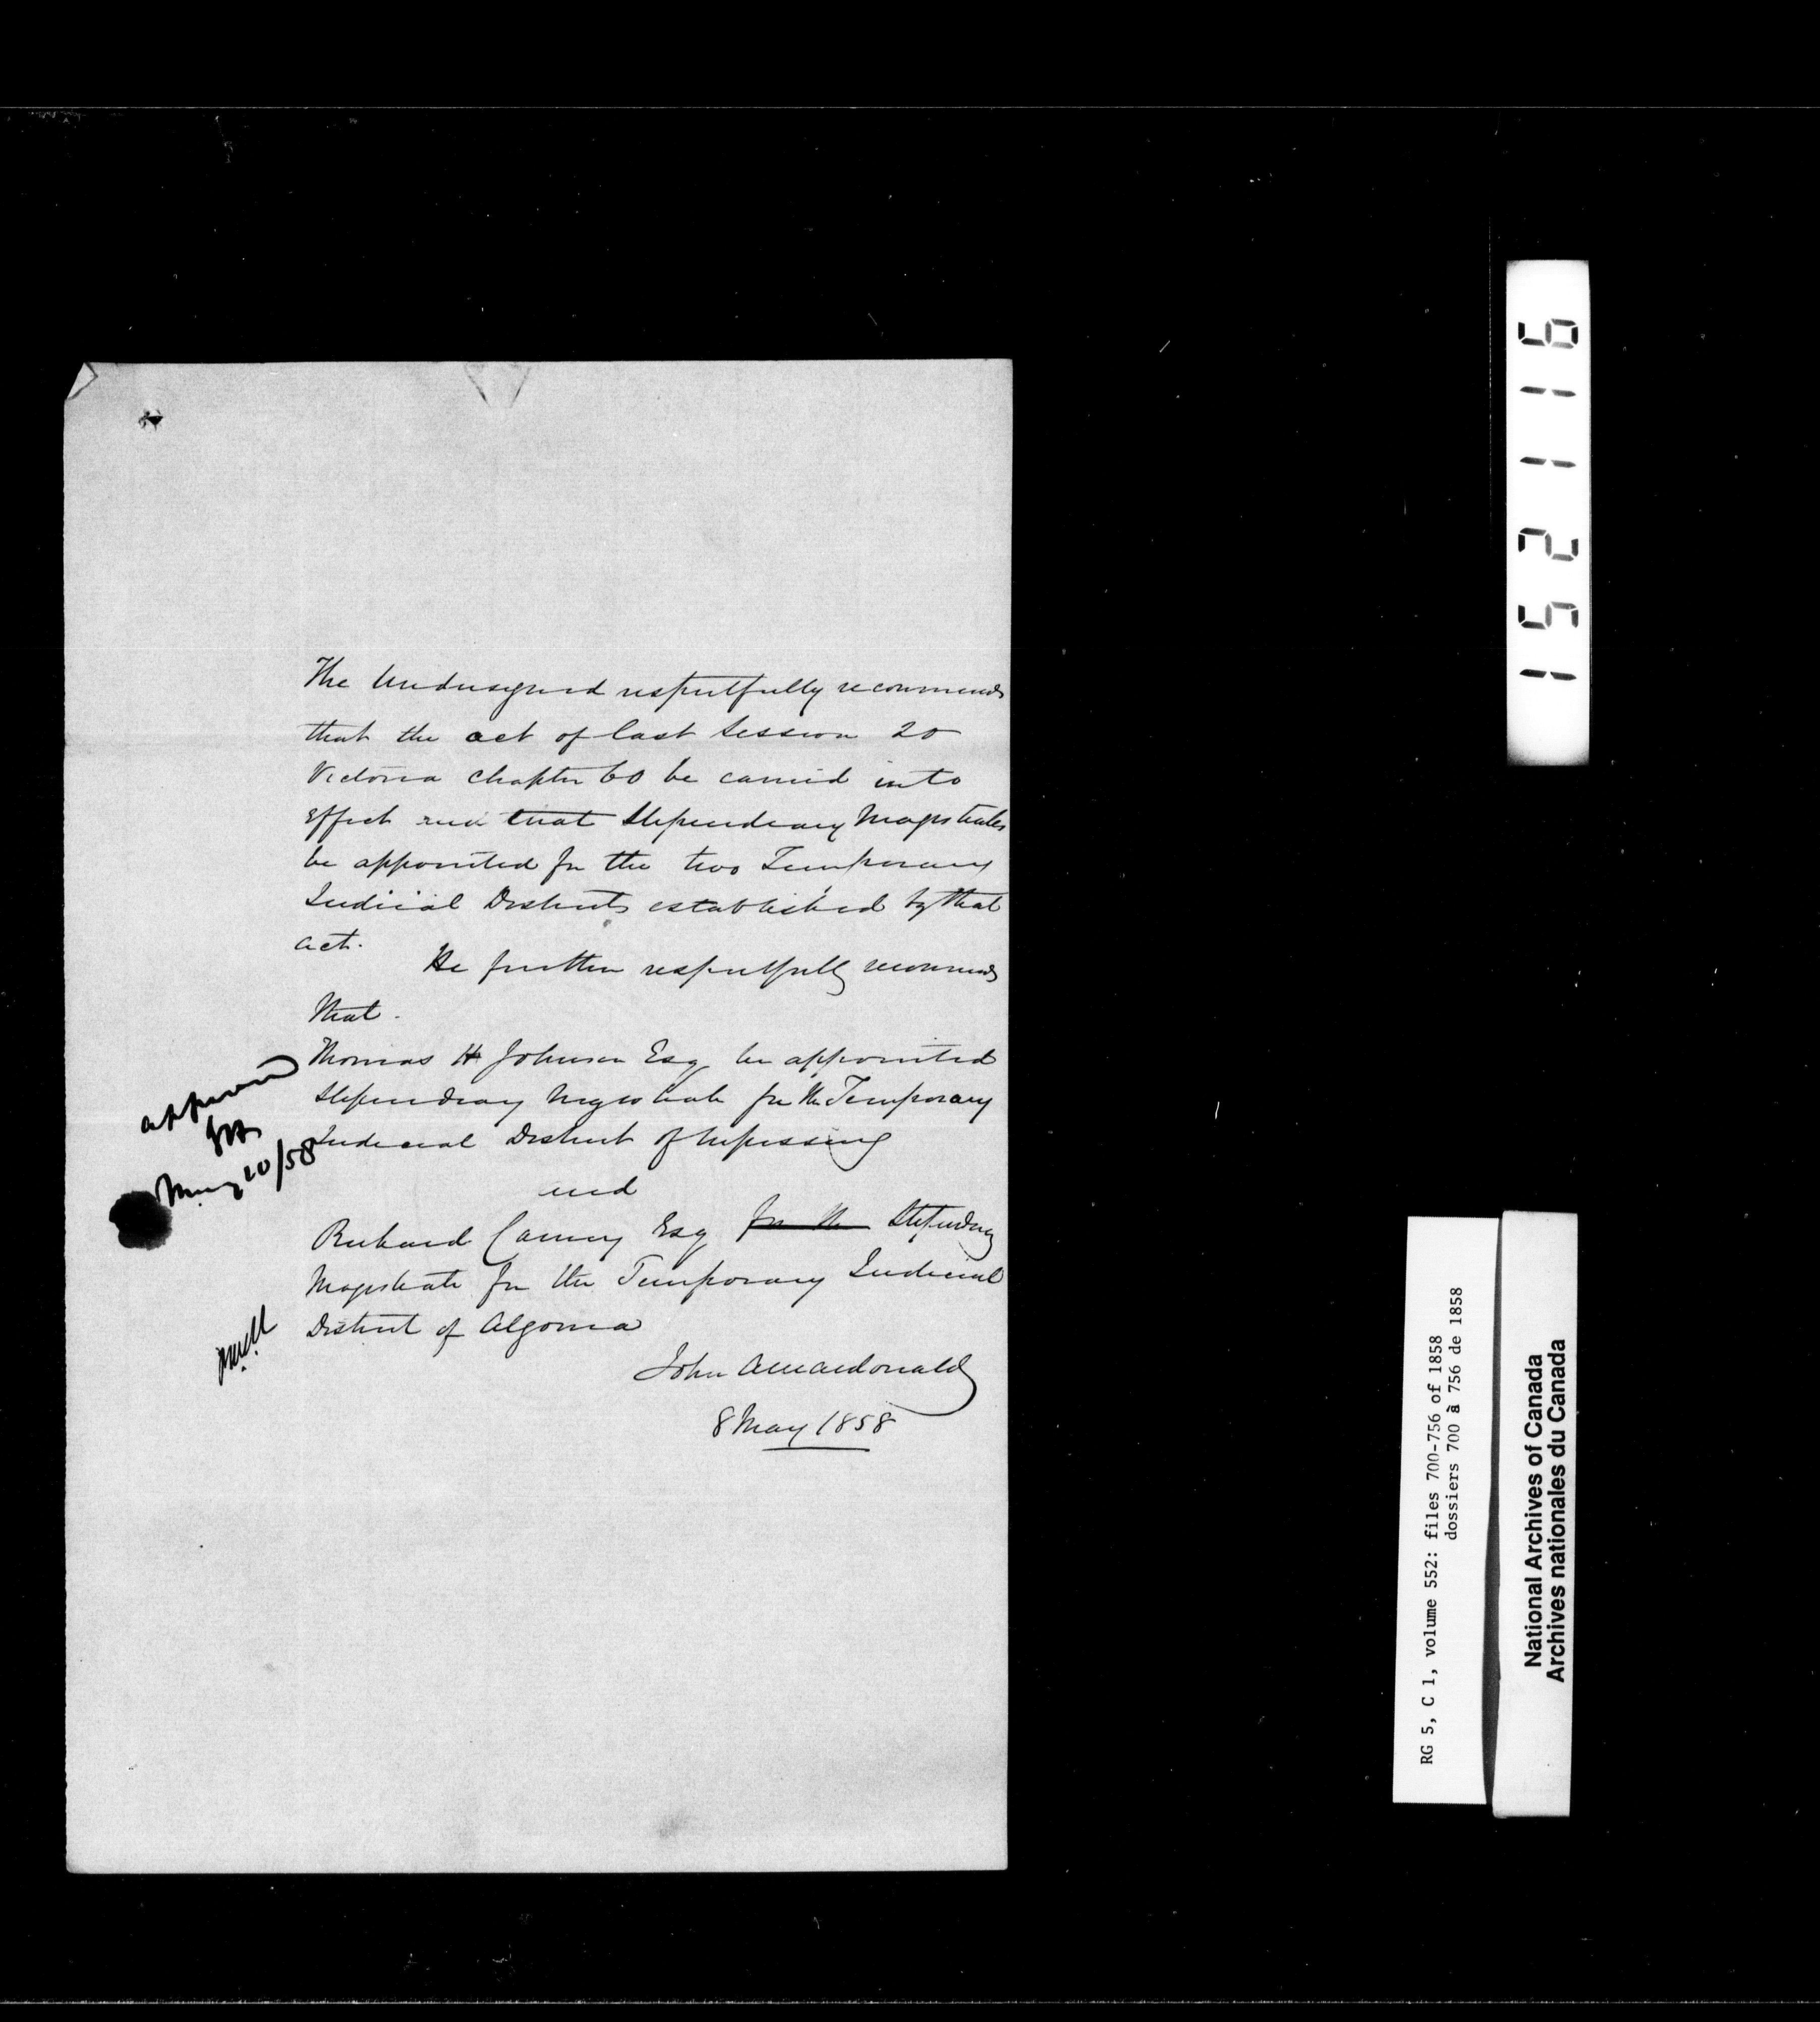 The Undersigned respectfully recommends
that the act of last Session 20
Victoria chapter 60 be carried into
Effect and that Stipendiary Magistrates
be appointed for the two Temporary
Judicial Districts established by that
act.
He further respectfully recommends
that.
Thomas H Johnson Esq be appointed
Stipendiary Magistrate for the Temporary
Judicial District of Nipissing
and
Richard Carney Esq for the Stipendiary
Magistrate for the Temporary Judicial
District of Algoma
John A Macdonald
8 May 1858
approved
May 10/58
152116
RG 5, C 1, volume 552: files 700-756 of 1858
dossiers 700 à 756 de 1858
National Archives of Canada
Archives nationales du Canada